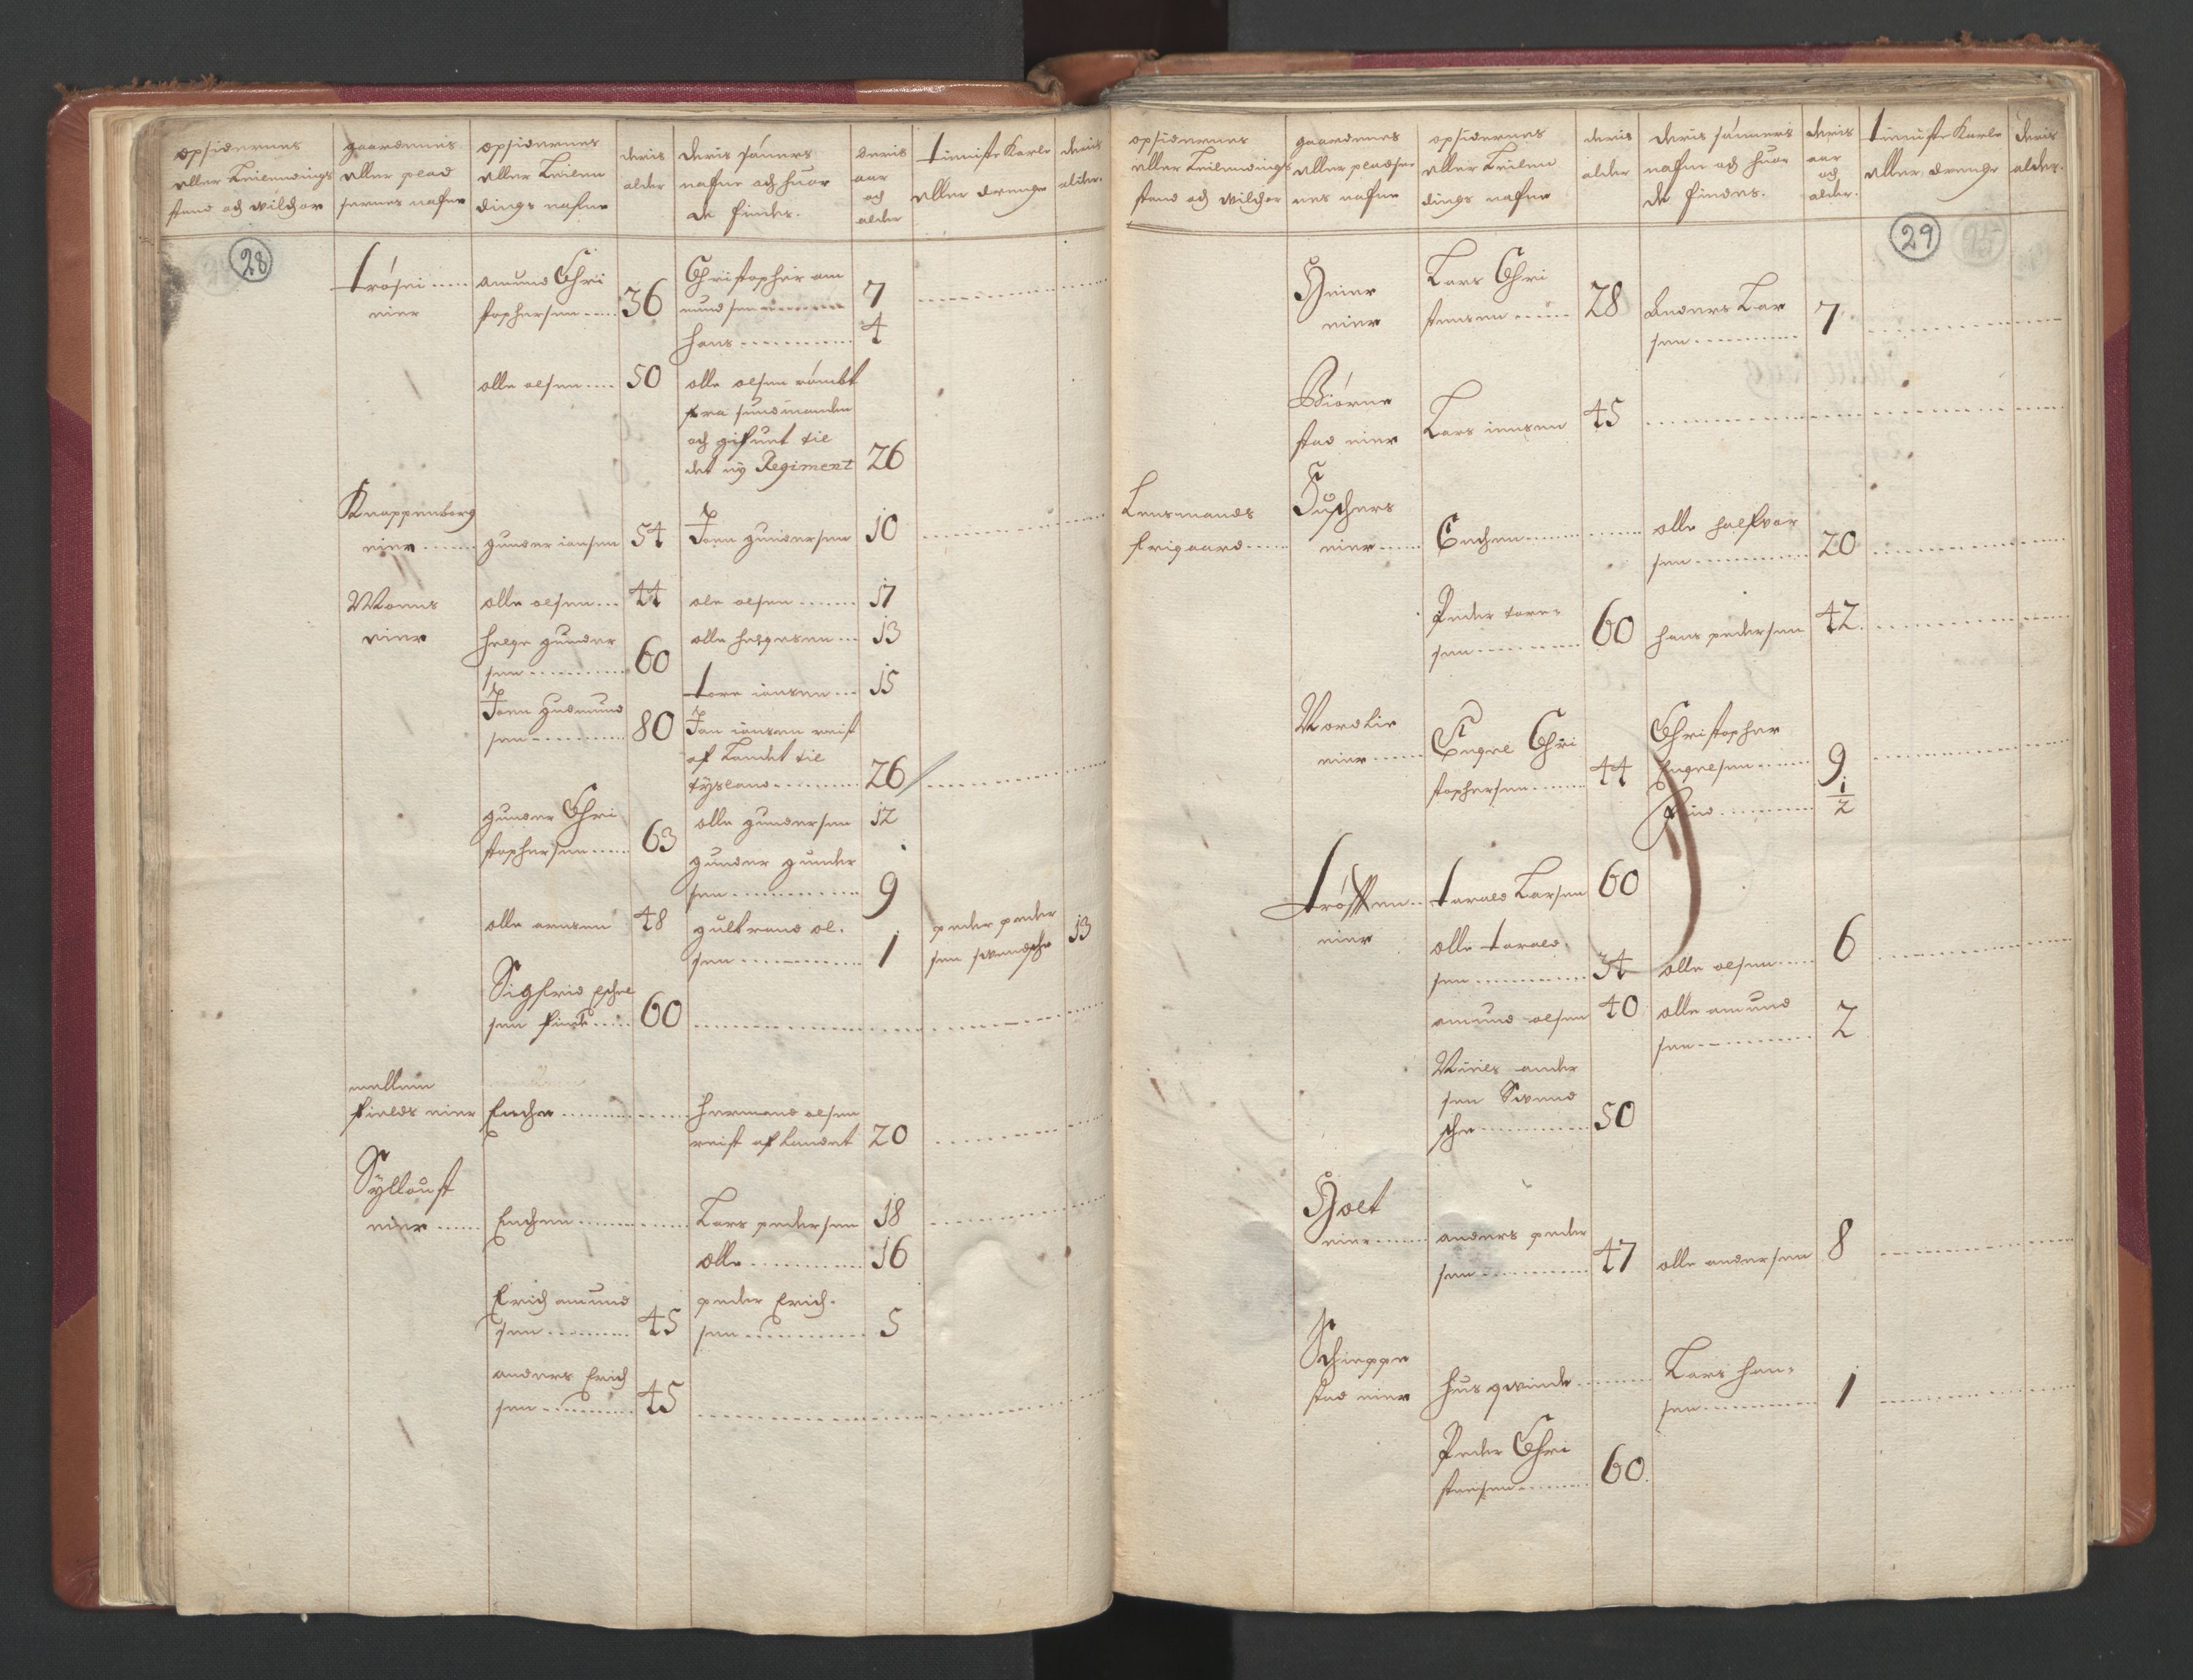 opsidernes
eller Leilendings
stand och wilchor
gaardenis
eller plad
sernes nafne
opsidernes
eller Leilen
dings nafne
deris
alder
deris sønners
nafne och huor
de findes.
deris
aar
och
alder
tieniste Karle
eller drenge
deris
alder.
28
trøsei
eier
amund Chri
stophersen
36
Christopher am
mundsen
7
hans
4
olle olsen
50
olle olsen rømbt
fra
och gifuet til
det ny Regiment
26
Knappenborg
eier
gunder iansen
54
Joen gundersen
10
Moens
eier
olle olsen
44
ole olsen
17
helge gunder
sen
60
olle helgesen
13
tore iansen
15
Joen gudmund
sen
80
Jan iansen reist
af Landet til
tysland
26
gunder Chri
stophersen
63
olle gundersen
12
gunder gunder
sen
9
olle arnsen
48
gulbrand ol.
sen
1
peder peder
sen swendsche
13
Sigfrid
sen find
60
mellem
fields eier
Enche
hermand olsen
reist af Landet
20
Sylloust
eier
Enchen
Lars pedersen
18
olle
16
Erich amund
sen
45
peder Erich.
sen
5
anders Erich
sen
45
opsidernes
eller Leilendings
stand och wilchor
gaardenes
eller pladser
nes nafne
opsidernes
eller Leilen
dings nafne
deris
alder
deris sønners
nafne och huor
de findes.
deris
aar
och
alder.
tieniste Karle
eller drenge
deris
alder.
29
Heier
eier
Lars Chri
stensen
28
Anders Lar
sen
7
Biørne
stad eier
Lars iensen
45
Lensmands
frigaard
eier
Enchen
olle halfvor
sen
20
Peder tore=
sen
60
hans pedersen
42
Nordlie
eier
Engel Chri
stophersen
44
Christopher
Engelsen
9
1/2
eier
tarald Larsen
60
olle tarald
sen
34
olle olsen
6
amund olsen
40
olle amund
sen
2
Niels ander
sen Swend
sche
50
Holt
eier
anders peder
sen
47
olle andersen
8
Schieppe
stad eier
hus qwinde
Lars han=
sen
1
Peder Chri
stensen
60.